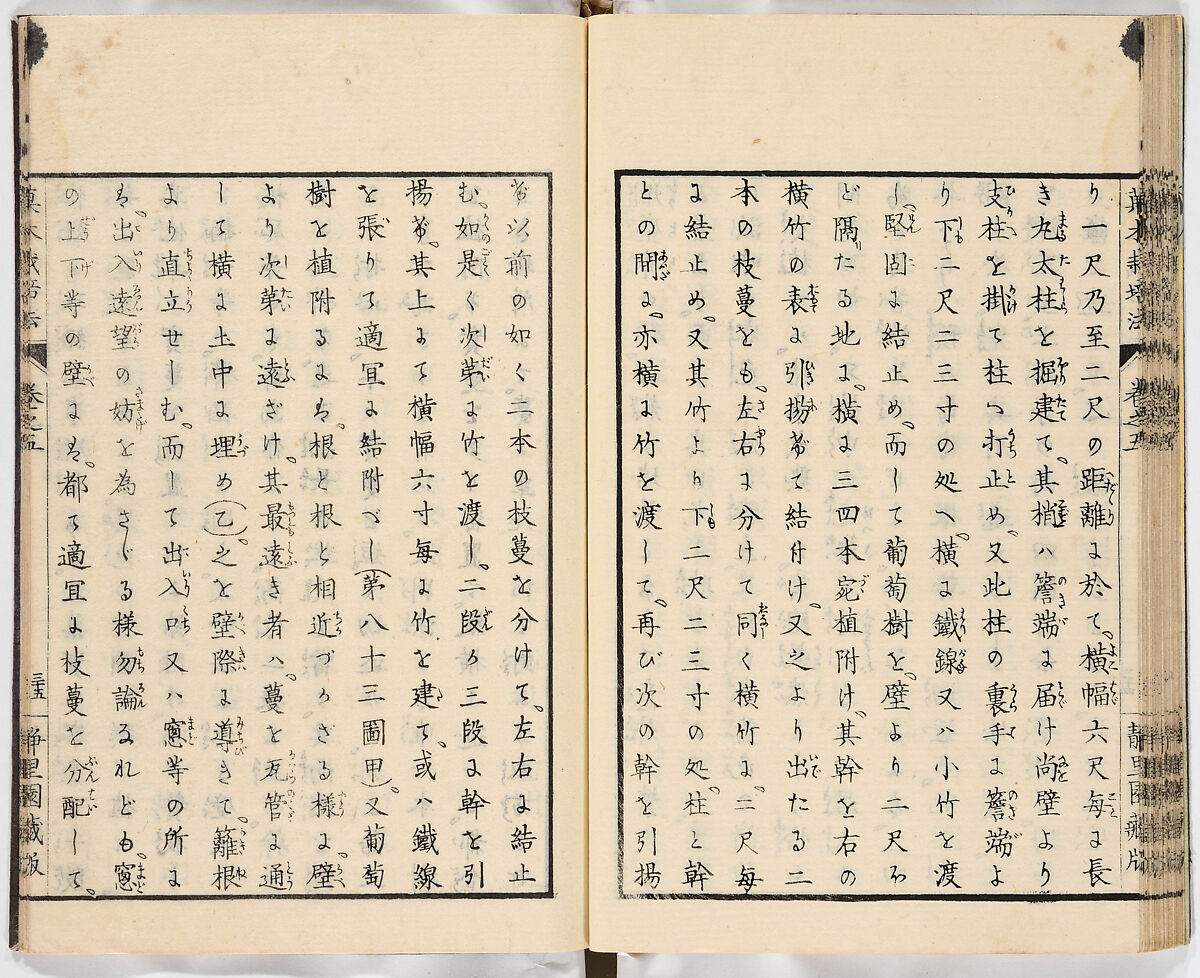 菓木栽培法
卷之五
靜里園藏版
り一尺乃至二尺の距離に於て、横幅六尺每に長
き丸太柱を掘建て、其梢ハ簷端に届け尚壁より
支柱を掛て柱へ打止め、又此柱の裏手に簷端よ
り下二尺二三寸の処へ、横に鐵線又ハ小竹を渡
し、堅固に結止め、而して葡萄樹を、壁より二尺ほ
ど隔たる地に、横に三四本宛植附け、其幹を右の
横竹の表に引揚げて結付け、又之より出たる二
本の枝蔓をも、左右に分けて同く横竹に、二尺每
に結止め、又其竹より下二尺二三寸の処、柱と幹
との間に、亦横に竹を渡して、再び次の幹を引揚
げ以前の如く二本の枝蔓を分けて、左右に結止
む、如是く次第に竹を渡し、二段か三段に幹を引
揚げ、其上にて横幅六寸每に竹を建て、或ハ鐵線
を張りて適宜に結附べし(第八十三圖甲)又葡萄
樹を植附るにハ、根と根と相近づかざる樣に、壁
より次第に遠ざけ、其最遠き者ハ、蔓を瓦管に通
して横に土中に埋め(乙)、之を壁際に導きて、籬根
より直立せしむ、而して出入口又ハ窻等の所に
ハ、出入遠望の妨を為さゞる樣勿論なれども、窻
の上下等の壁にハ、都て適宜に枝蔓を分配して、
菓木栽培法
卷之五
三十五
靜里園藏版